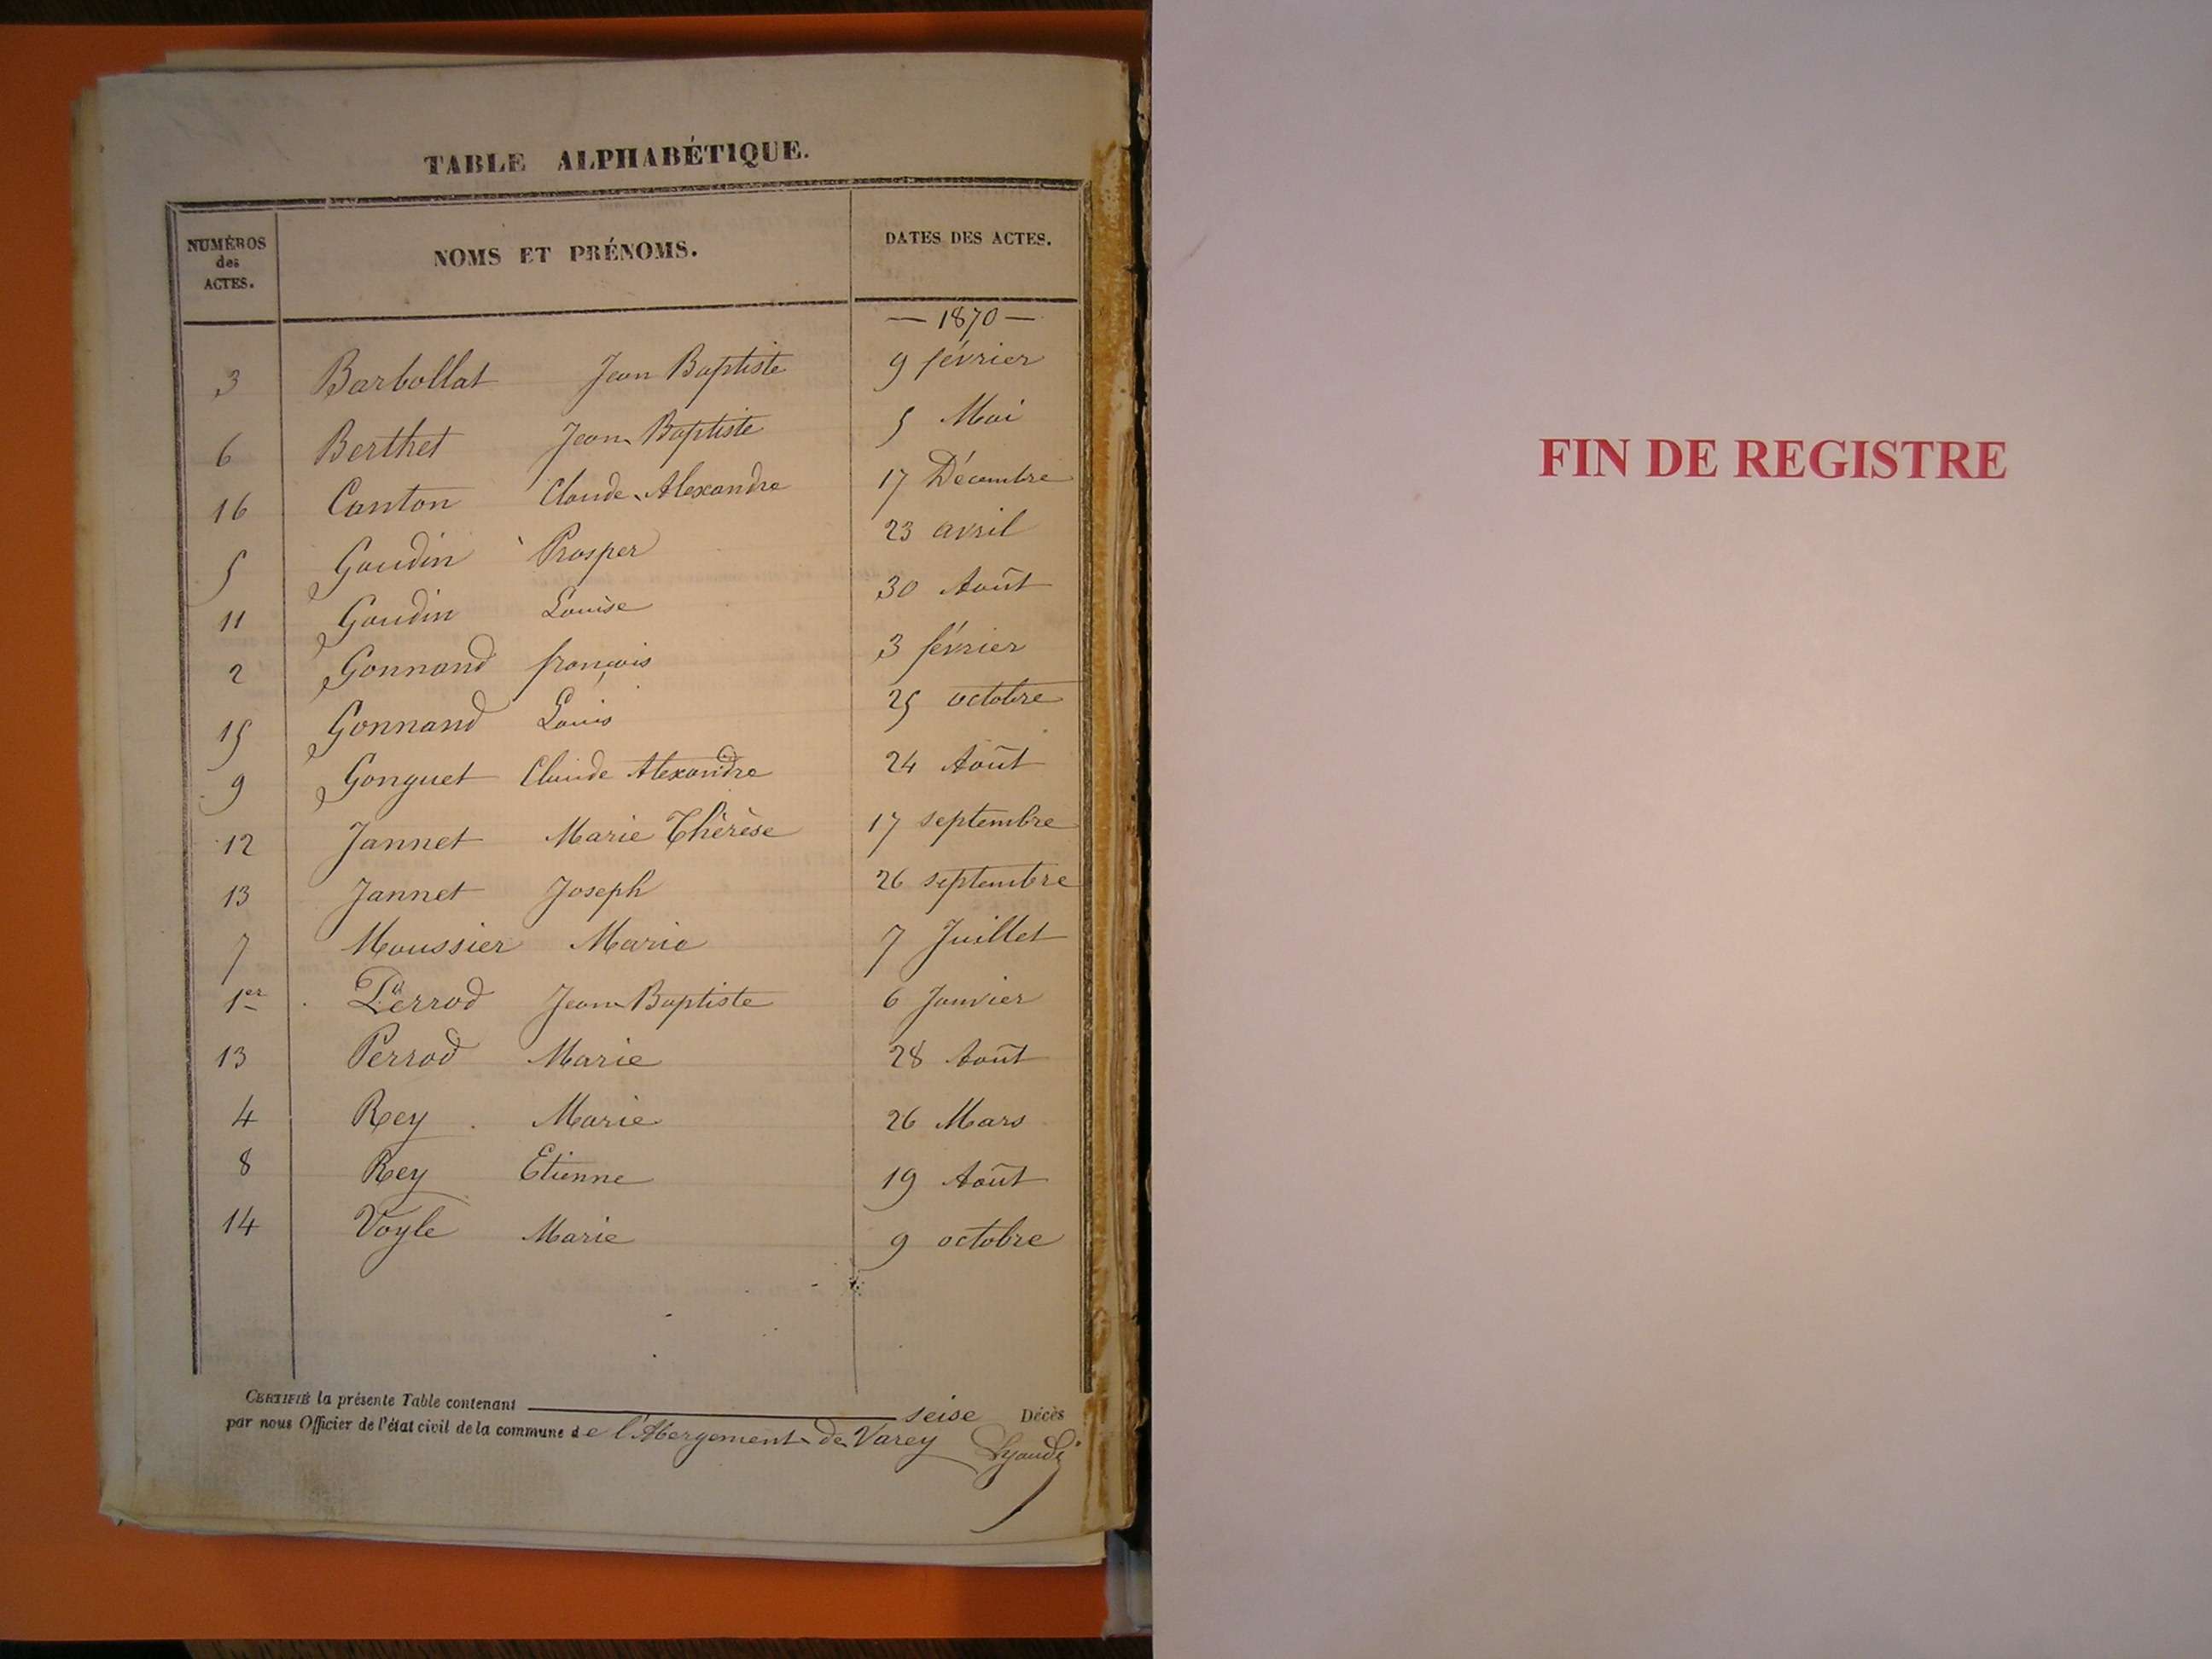 TABLE ALPHABÉTIQUE.
NUMÉROS des ACTES. NOMS ET PRÉNOMS. DATES DES ACTES.
— 1870 —
3 Barbollat Jean Baptiste 9 février
6 Berthet Jean Baptiste 5 Mai
16 Canton Claude Alexandre 17 Décembre
5 Goudin Prosper 23 avril
11 Goudin Louise 30 Août
2 Gonnand françois 3 février
15 Gonnand Louis 25 octobre
9 Gonguet Claude Alexandre 24 Août
12 Jannet Marie Thérèse 17 septembre
13 Jannet Joseph 26 septembre
7 Moussier Marie 7 Juillet
1er Perrod Jean Baptiste 6 Janvier
13 Perrod Marie 28 Août
4 Rey Marie 26 Mars
8 Rey Etienne 19 Août
14 Voyle Marie 9 octobre
CERTIFIÉ la présente Table contenant seise Décès
par nous Officier de l'état civil de la commune de l'Abergement de Varey
FIN DE REGISTRE